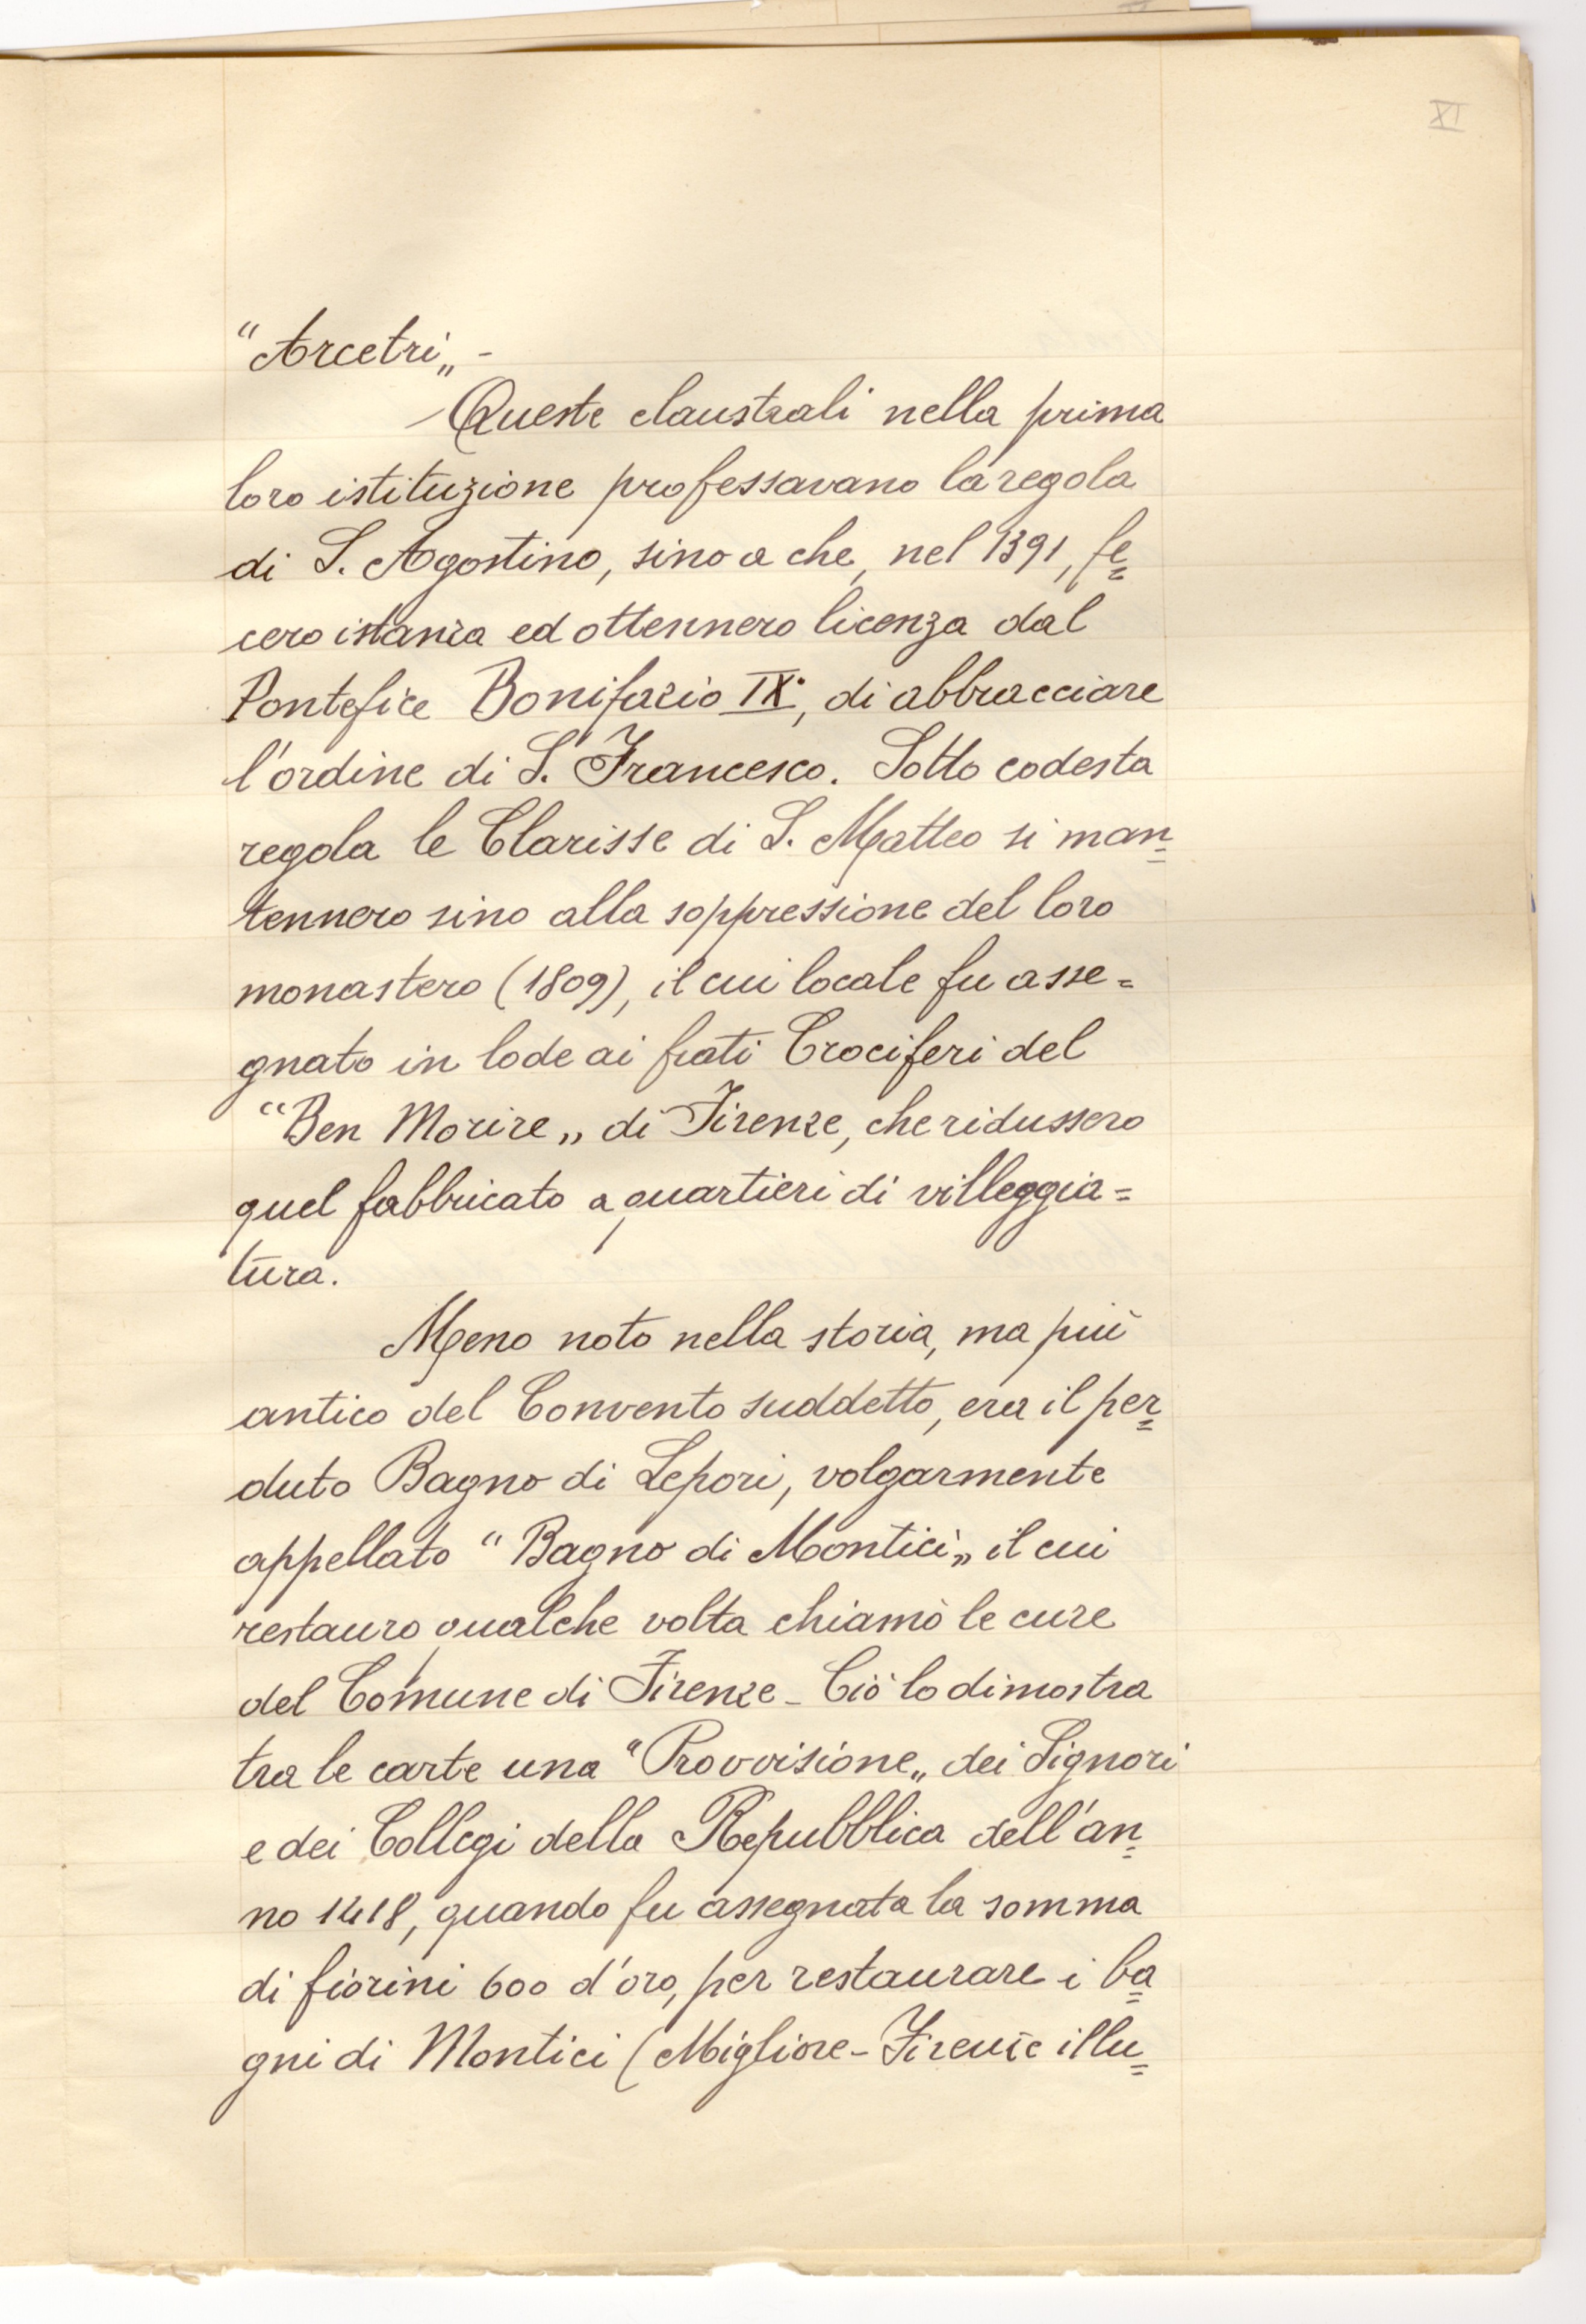 XI
“Arcetri„ -
Queste claustrali nella prima
loro istituzione professavano la regola
di S. Agostino, sino a che, nel 1391, fe=
cero istanza ed ottennero licenza dal
Pontefice Bonifazio IX°, di abbracciare
l'ordine di S. Francesco. Sotto codesta
regola le Clarisse di S. Matteo si man=
tennero sino alla soppressione del loro
monastero (1809), il cui locale fu asse=
gnato in lode ai frati Crociferi del
“Ben Morire„ di Firenze, che ridussero
quel fabbricato a quartieri di villeggia=
tura.
Meno noto nella storia, ma più
antico del Convento suddetto, era il per=
duto Bagno di Lepori, volgarmente
appellato “Bagno di Montici„ il cui
restauro qualche volta chiamò le cure
del Comune di Firenze - Ciò lo dimostra
tra le carte una “Provvisione„ dei Signori
e dei Collegi della Repubblica dell'an=
no 1418, quando fu assegnata la somma
di fiorini 600 d'oro, per restaurare i ba=
gni di Montici (Migliore - Firenze illu=